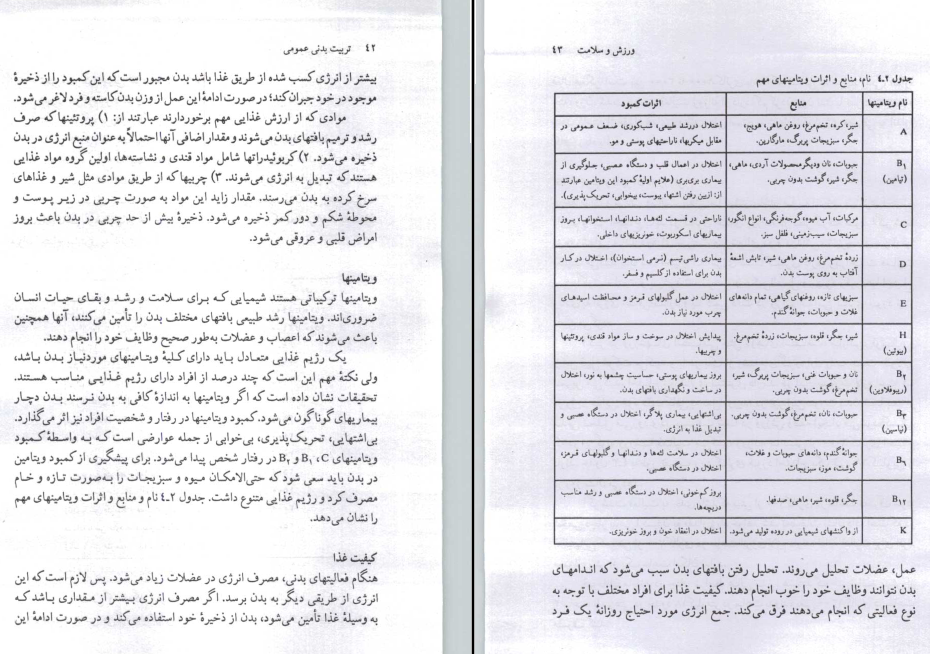 ۴۲ تربیت بدنی عمومی
بیشتر از انرژی کسب شده از طریق غذا باشد بدن مجبور است که این کمبود را از ذخیرهٔ
موجود در خود جبران کند؛ در صورت ادامهٔ این عمل از وزن بدن کاسته و فرد لاغر می‌شود.
موادی که از ارزش غذایی مهم برخوردارند عبارتند از: ۱) پروتئینها که صرف
رشد و ترمیم بافتهای بدن می‌شوند و مقدار اضافی آنها احتمالاً به عنوان منبع انرژی در بدن
ذخیره می‌شود. ۲) کربوئیدراتها شامل مواد قندی و نشاسته‌ها، اولین گروه مواد غذایی
هستند که تبدیل به انرژی می‌شوند. ۳) چربیها که از طریق موادی مثل شیر و غذاهای
سرخ کرده به بدن می‌رسند. مقدار زاید این مواد به صورت چربی در زیر پوست و
محوطهٔ شکم و دور کمر ذخیره می‌شود. ذخیرهٔ بیش از حد چربی در بدن باعث بروز
امراض قلبی و عروقی می‌شود.
ویتامینها
ویتامینها ترکیباتی هستند شیمیایی که برای سلامت و رشد و بقای حیات انسان
ضروری‌اند. ویتامینها رشد طبیعی بافتهای مختلف بدن را تأمین می‌کنند، آنها همچنین
باعث می‌شوند که اعصاب و عضلات به‌طور صحیح وظایف خود را انجام دهند.
یک رژیم غذایی متعادل باید دارای کلیهٔ ویتامینهای موردنیاز بدن باشد،
ولی نکتهٔ مهم این است که چند درصد از افراد دارای رژیم غذایی مناسب هستند.
تحقیقات نشان داده است که اگر ویتامینها به اندازهٔ کافی به بدن نرسند بدن دچار
بیماریهای گوناگون می‌شود. کمبود ویتامینها در رفتار و شخصیت افراد نیز اثر می‌گذارد.
بی‌اشتهایی، تحریک‌پذیری، بی‌خوابی از جمله عوارضی است که به واسطهٔ کمبود
ویتامینهای B۱ ،C و B۲ در رفتار شخص پیدا می‌شود. برای پیشگیری از کمبود ویتامین
در بدن باید سعی شود که حتی‌الامکان میوه و سبزیجات را به‌صورت تازه و خام
مصرف کرد و رژیم غذایی متنوع داشت. جدول ۲ـ۴ نام و منابع و اثرات ویتامینهای مهم
را نشان می‌دهد.
کیفیت غذا
هنگام فعالیتهای بدنی، مصرف انرژی در عضلات زیاد می‌شود. پس لازم است که این
انرژی از طریقی دیگر به بدن برسد. اگر مصرف انرژی بیشتر از مقداری باشد که
به وسیلهٔ غذا تأمین می‌شود، بدن از ذخیرهٔ خود استفاده می‌کند و در صورت ادامهٔ این
ورزش و سلامت ۴۳
جدول ۲ـ۴ نام، منابع و اثرات ویتامینهای مهم
نام ویتامینها منابع اثرات کمبود
A شیر، کره، تخم‌مرغ، روغن ماهی، هویج، اختلال در رشد طبیعی، شب‌کوری، ضعف عمومی در
جگر، سبزیجات پربرگ، مارگارین. مقابل میکربها، ناراحتیهای پوستی و مو.
B۱ حبوبات، نان و دیگر محصولات آردی، ماهی، اختلال در اعمال قلب و دستگاه عصبی، جلوگیری از
(تیامین) جگر، شیر، گوشت بدون چربی. بیماری بری‌بری (علایم اولیهٔ کمبود این ویتامین عبارتند
از: ازبین رفتن اشتها، یبوست، بیخوابی، تحریک‌پذیری).
C مرکبات، آب میوه، گوجه‌فرنگی، انواع انگور، ناراحتی در قسمت لثه‌ها، دندانها، استخوانها، بروز
سبزیجات، سیب‌زمینی، فلفل سبز. بیماریهای اسکوربوت، خونریزیهای داخلی.
D زردهٔ تخم‌مرغ، روغن ماهی، شیر، تابش اشعهٔ بیماری راشی‌تیسم (نرمی استخوان)، اختلال در کار
آفتاب به روی پوست بدن. بدن برای استفاده از کلسیم و فسفر.
E سبزیهای تازه، روغنهای گیاهی، تمام دانه‌های اختلال در عمل گلبولهای قرمز و محافظت اسیدهای
غلات و حبوبات، جوانهٔ گندم. چرب مورد نیاز بدن.
H شیر، جگر، قلوه، سبزیجات، زردهٔ تخم‌مرغ. پیدایش اختلال در سوخت و ساز مواد قندی، پروتئینها
(بیوتین) و چربیها.
B۲ نان و حبوبات غنی، سبزیجات پربرگ، شیر، بروز بیماریهای پوستی، حساسیت چشمها به نور، اختلال
(ریبوفلاوین) تخم‌مرغ، گوشت بدون چربی. در ساخت و نگهداری بافتهای بدن.
B۳ حبوبات، نان، تخم‌مرغ، گوشت بدون چربی. بی‌اشتهایی، بیماری پلاگر، اختلال در دستگاه عصبی و
(نیاسین) تبدیل غذا به انرژی.
B۶ جوانهٔ گندم، دانه‌های حبوبات و غلات، اختلال در سلامت لثه‌ها و دندانها و گلبولهای قرمز،
گوشت، موز، سبزیجات. اختلال در دستگاه عصبی.
B۱۲ جگر، قلوه، شیر، ماهی، صدفها. بروز کم‌خونی، اختلال در دستگاه عصبی و رشد مناسب
دربچه‌ها.
K از واکنشهای شیمیایی در روده تولید می‌شود. اختلال در انعقاد خون و بروز خونریزی.
عمل، عضلات تحلیل می‌روند. تحلیل رفتن بافتهای بدن سبب می‌شود که اندامهای
بدن نتوانند وظایف خود را خوب انجام دهند. کیفیت غذا برای افراد مختلف با توجه به
نوع فعالیتی که انجام می‌دهند فرق می‌کند. جمع انرژی مورد احتیاج روزانهٔ یک فرد